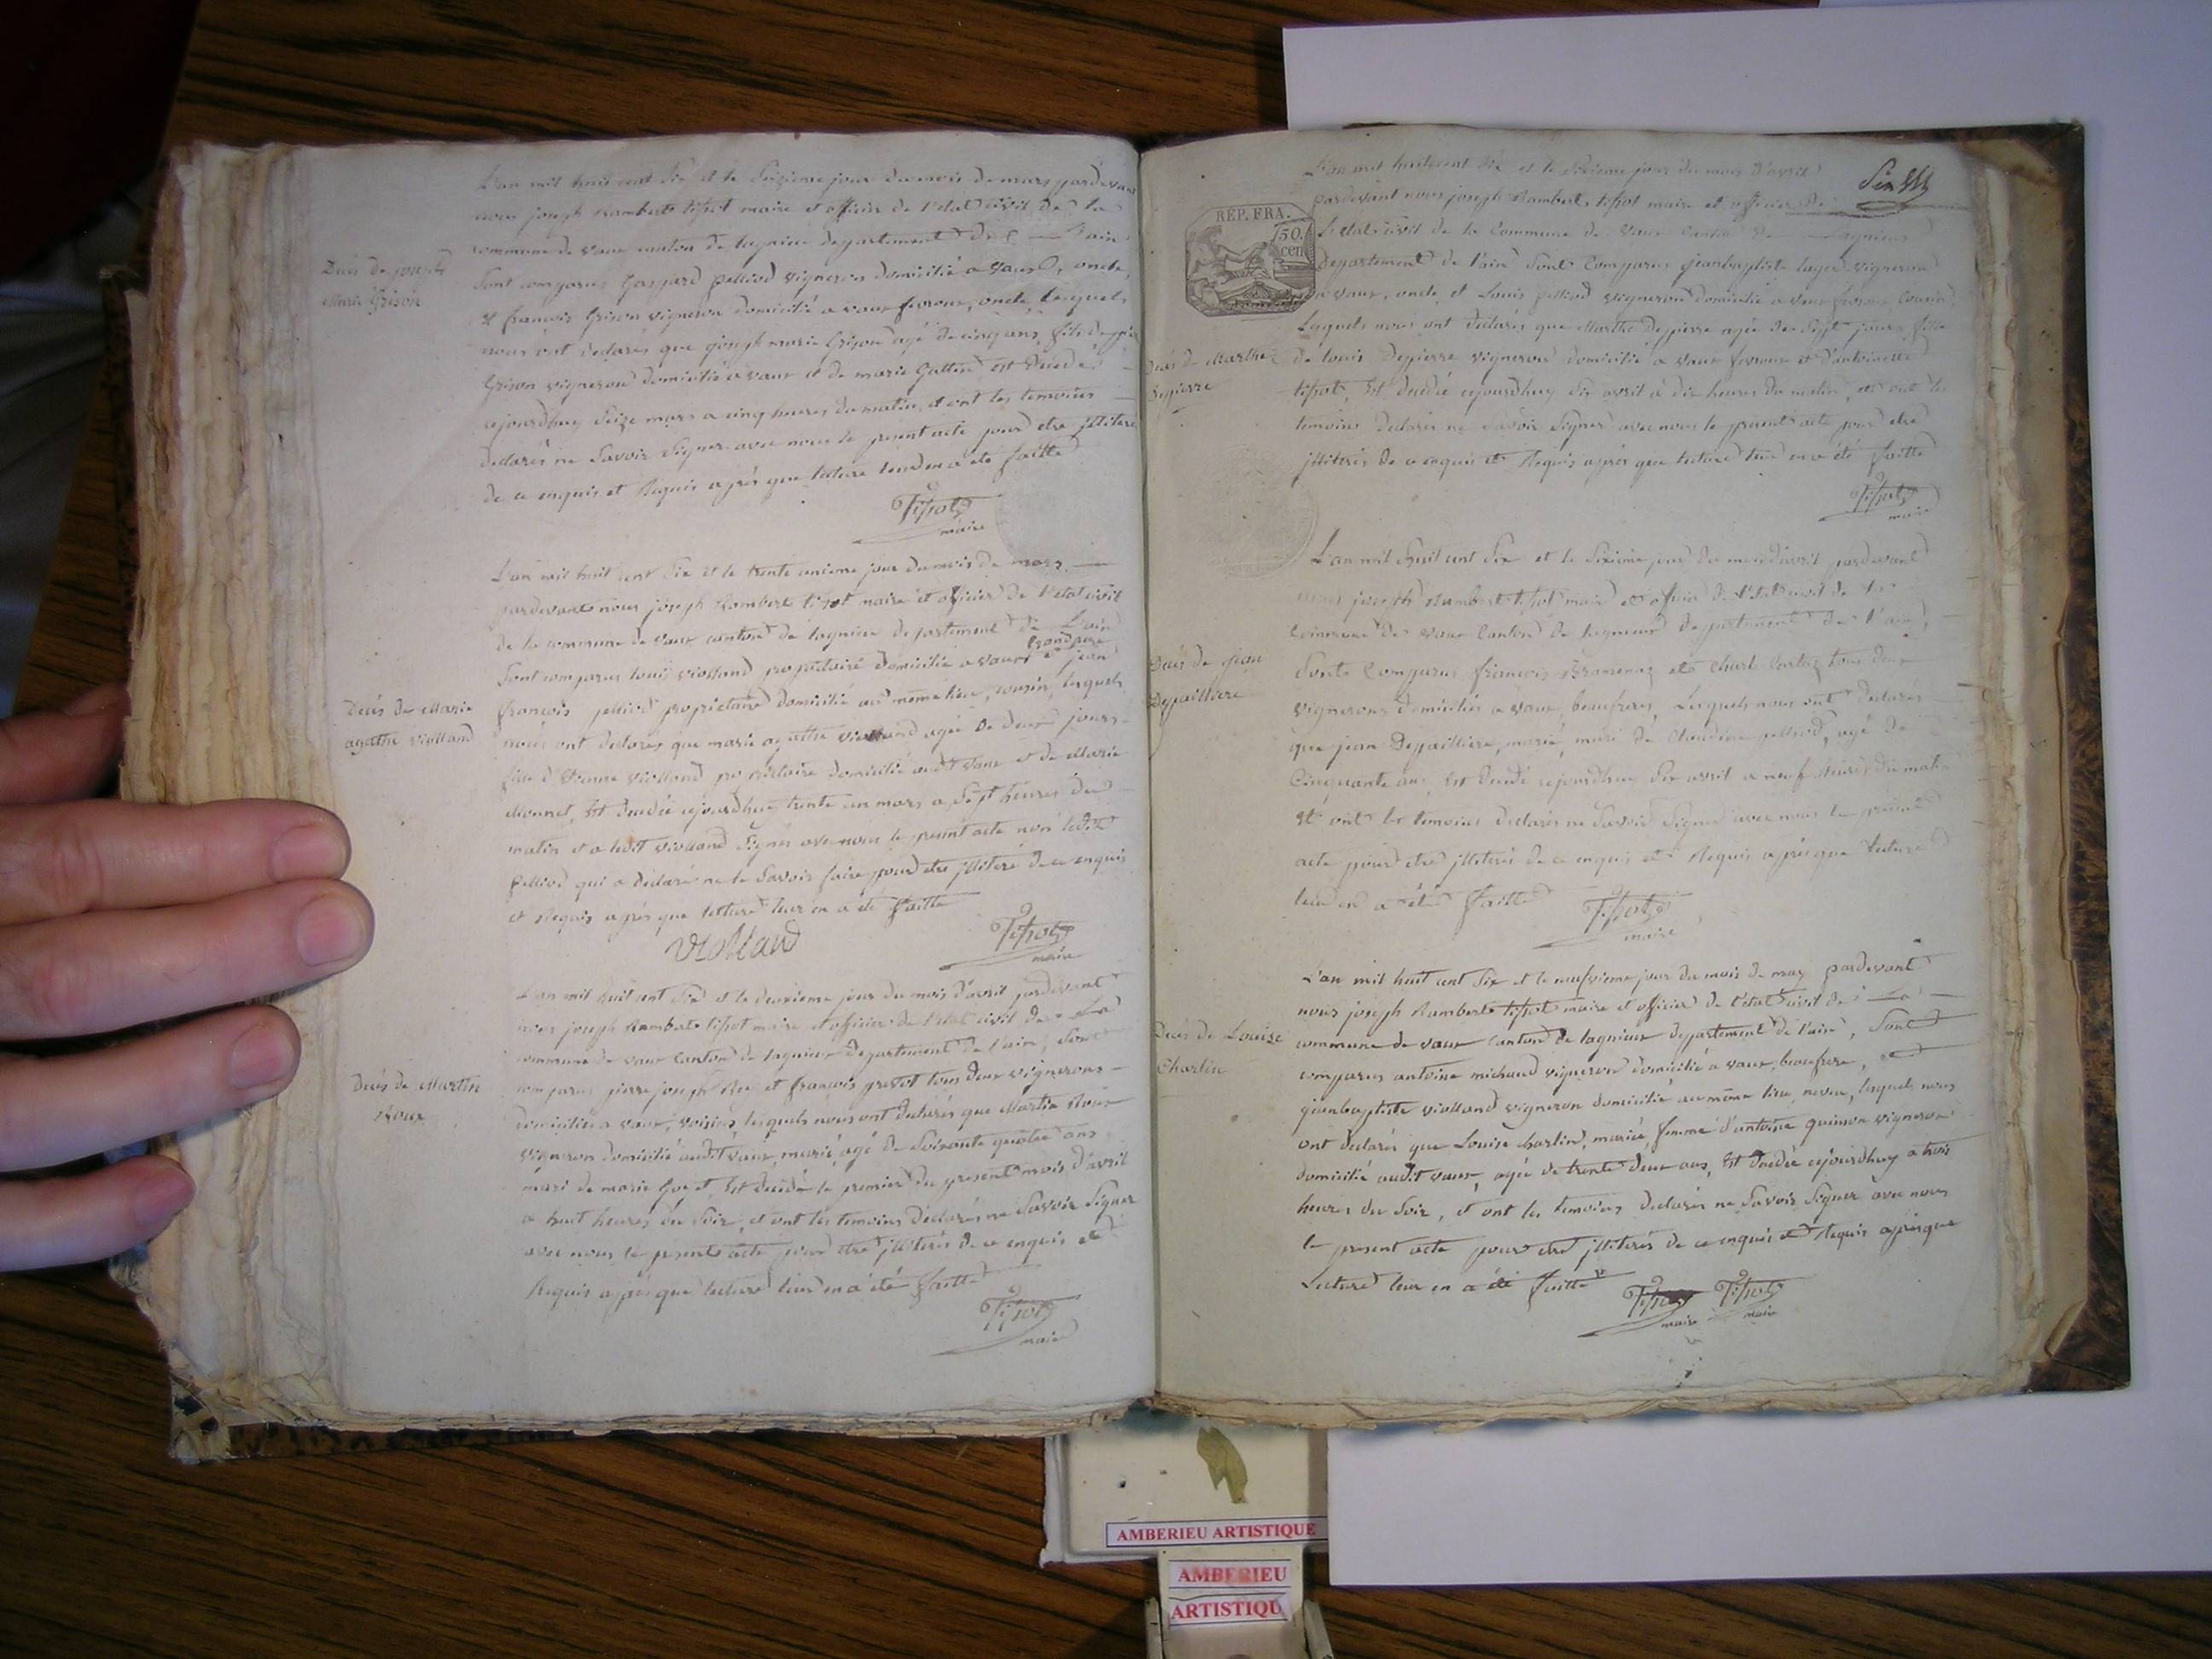 L'an mil huit cent dix et le seizieme jour du mois de mars pardevant
nous joseph Rambert tissot maire et officier de l'etat civil de la
commune de vaux canton de lagnieu departement de l'ain
Sont comparus gaspard pelliod vigneron domicilié a vaux, oncle,
et francois Grison vigneron domicilié a vaux fevroux, oncle, lesquels
nous ont declarés que joseph marie Grison agé de cinq ans, fils de
Grison vigneron domicilié a vaux et de marie est decedé
cejourdhuy seize mars a cinq heures du matin, et ont les temoins
declarés ne Savoir Signer avec nous le present acte pour etre jlliterés
de ce enquis et Requis après que lecture leur en a eté faitte
Décès de joseph
Marie Grison
Tissot
maire
L'an mil huit cent dix et le trente unieme jour du mois de mars
pardevant nous joseph Rambert tissot maire et officier de l'etat civil
de la commune de vaux canton de lagnieu departement de L'ain
grand pere
Sont comparus louis violland propriétaire domicilié a vaux et jean
françois pelliod propriétaire domicilié au même lieu, cousin, lesquels
nous ont declarés que marie agathe violland agée de deux jours
fille d'Etienne violland propriétaire domicilié audit vaux et de Marie
Monnet, Est decedée cejourdhuy trente un mars a Sept heures du
matin et a ledit violland Signés avec nous le present acte non ledit
Pelliod qui a déclaré ne le Savoir faire pour etre jlliteré de ce enquis
et Requis après que lecture leur en a eté faitte
Décès de Marie
agathe violland
violland
Tissot
maire
L'an mil huit cent dix et le deuxieme jour du mois d'avril pardevant
nous joseph Rambert tissot maire et officier de l'etat civil de La
commune de vaux Canton de lagnieu departement de l'ain, Sont
comparus pierre joseph Rey et françois prevot tous deux vignerons
domiciliés a vaux, voisins, lesquels nous ont declarés que Martin Roux
vigneron domicilié audit vaux, marié, agé de Soixante quatre ans
mari de marie Goyet, Est decedé le premier du present mois d'avril
a huit heures du Soir, et ont les temoins déclarés ne Savoir Signer
avec nous le present acte pour etre jlliterés de ce enquis et
Requis après que lecture leur en a été faitte
Décès de Martin
Roux
Tissot
maire
L'an mil huit cent dix et le dixieme jour du mois d'avril
pardevant nous joseph Rambert tissot maire et officier de
L'etat civil de la Commune de vaux Canton de Lagnieu
departement de l'ain Sont Comparus jeanbaptiste vigneron
a vaux, oncle, et Louis pelliod vigneron domicilié a vaux fevroux Cousin
Lesquels nous ont declarés que Marthe Depierre agée de Sept jours, fille
de louis Depierre vigneron domicilié a vaux fevroux et d'antoinette
tissot, Est decedée cejourdhuy dix avril a dix heures du matin, et ont les
temoins declarés ne Savoir Signer avec nous le present acte pour etre
jlliterés de ce enquis et Requis après que lecture leur en a été faitte
RÉP. FRA.
750.
cen
Décès de Marthe
Depierre
Tissot
maire
L'an mil huit cent dix et le dixieme jour du mois d'avril pardevant
nous joseph Rambert tissot maire et officier de l'etat civil de la
Commune de vaux Canton de lagnieu departement de l'ain,
Sont Comparus francois et Charle tous deux
vignerons domiciliés a vaux, beaufreres, Lesquels nous ont declarés
que jean Depaillliere, marié, mari de Claudine pelliod, agé de
Cinquante ans, Est decedé cejourdhuy dix avril a neuf heures du matin
Et ont les temoins declarés ne Savoir Signer avec nous le present
acte pour etre jlliterés de ce enquis et Requis après que lecture
leur en a été faitte
Décès de jean
Depailliere
Tissot
maire
L'an mil huit cent dix et le neufvieme jour du mois de may pardevant
nous joseph Rambert tissot maire et officier de l'etat civil de La
commune de vaux canton de lagnieu departement de l'ain, Sont
comparus antoine michaud vigneron domicilié a vaux, beaufrere, et
jeanbaptiste violland vigneron domicilié au même lieu neveu, lesquels nous
ont declarés que Louise charlin, mariée, femme d'antoine quinson vigneron
domicilié audit vaux, agée de trente deux ans, Est decedée cejourdhuy a trois
heures du Soir, et ont les temoins declarés ne Savoir Signer avec nous
le present acte pour etre jlliterés de ce enquis et Requis après que
Lecture leur en a été faitte
Décès de Louise
Charlin
Tissot
maire
Tissot
maire
AMBERIEU ARTISTIQUE
AMBERIEU
ARTISTIQU